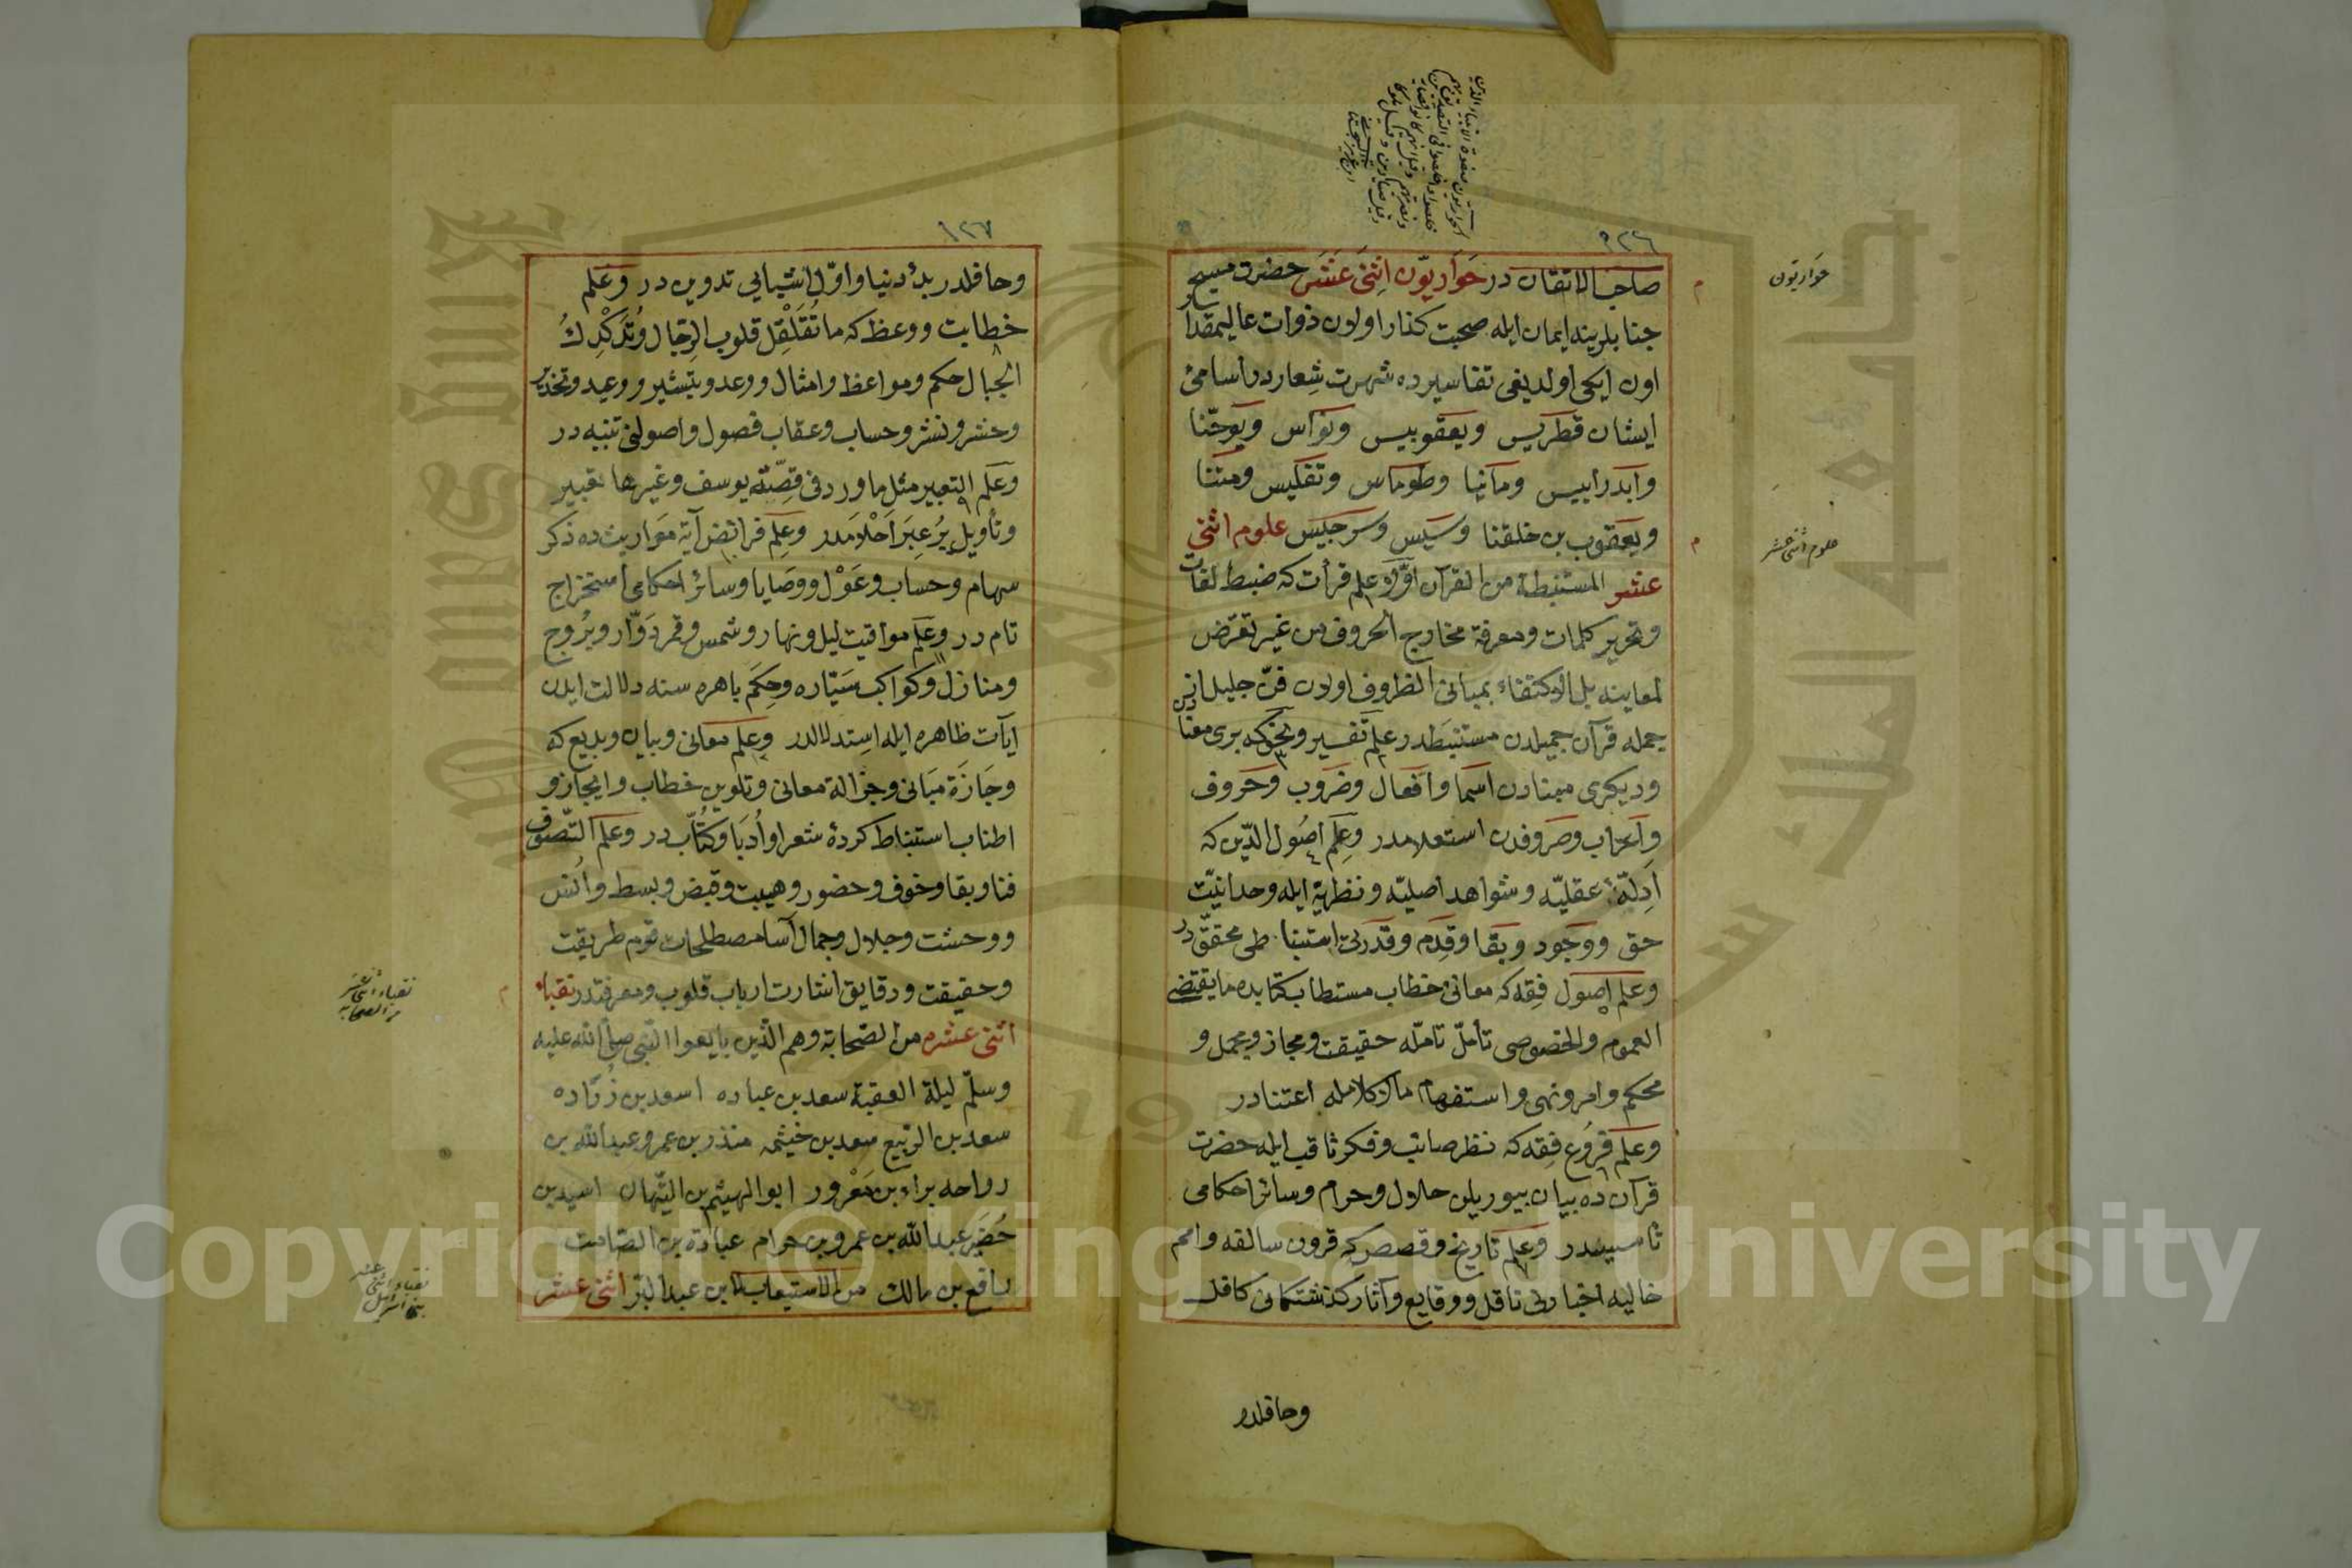 صاحب الاتقان در حَوَاريّون اِثنىْ عَشَر حضرت مسيح
جنابلرينه ايمان ايله صحبت كذار اولان ذوات عاليمقدار
اون ايكى اولديغى تفاسيرده شهرت شِعاردر اسامئ
ايشان قطريس ويعقوبيس ونواس ويوحّنا
وابدرابيس ومانيا وطوماس وتفليس ومتنا
ويعقوب بن خلقنا وسيس وسرجيس علوم اثنى
عشر المستنبطة من القرآن اوّلا علم قرأت كه ضبط لغات
وتحرير كلمات ومعرفة مخارج الحروف من غير تعرّض
لمعاينه بل الاكتفاء بمبانى الظروف اولان فنّ جليل
جمله قرآن جميلدن مستنبَطدر علم تفسير ونحو كه برى معنا
وديكرى مبنادن اسما وافعال وضروب وحروف
واعراب وصروفدن استعلامدر وعِلم اصُول الدّين كه
اَدِلّهٔ عقليّه وشواهد اصليّه ونظريهٔ ايله وحدانيّت
حق ووجود وبقا وقِدَم وقدرتى محقّق در
وعلم اصول فِقه كه معانئ خطاب مستطاب كتابده ما يقتضى
العموم والخصوصى تأمل تامّله حقيقت ومجاز ومجمل و
محكم وامر ونهى واستفهام مالاكلامله اعتنادر
وعلم فرُوع فِقه كه نظر صائب وفكر ثاقب ايله حضرت
قرآن ده بيان بيوريلن حلال وحرام وسائر احكامى
تأسيسدر وعِلم تاريخ وقصص كه قرون سالفه وامم
خاليه اخبارنى ناقل ووقايع وآثار كذشتكانى كافل
وحاقلدر
حَوَاريّون
علوم اثنى عشر
وحاقلدر بدأ دنيا واوّل اشيايى تدوين در وعَلم
خطابت ووعظ كه ما تُقَلْقِل قلوب الرجال وتُدَكْدِكُ
الجبال حكم ومواعظ وامثال ووعد وتبشير ووعيد وتحذير
وحشر ونشر وحساب وعقاب فصول واصولنى تنبيه در
وعَلم التعبير مثل ما ورد فى قِصّة يوسف وغيرها تعبير
وتأويل يرعبر احلامدر وعِلم فرائض آية مواريث ده ذكر
سهام وحساب وعَوْل ووصَايا وسائر احكامى استخراج
تام در وعَلم مواقيت ليل ونهار وشمس وقمر دَوّار وبُرُوج
ومنازل وكواكب سَيّاره وحِكَم باهره سنه دلالت ايدن
آيات ظاهره ايله اسِتدلالدر وعِلم معانى وبيان وبديع كه
وجَازَة مَبانى وجزالة معانى وتلوين خطاب وايجاز و
اطناب استنباط كردهٔ شعرا واُدَبَا وكُتّاب در وعَلم التّصوّف
فنا وبقا وخوف وحضور وهيبت وقبض وبسط واُنس
ووحشت وجلال وجمال آسا مصطلحات قوم طريقت
وحقيقت ودقايق اشارت ارباب قلوب ومعرفتدر نقباء
اثنى عشره من الصّحابة وهم الّذين بايعوا النّبى صلّى الله عليه
وسلّم ليلة العقبة سعد بن عباده اسعد بن زُرَاره
سعد بن الرّبيع سعد بن خيثمه منذر بن عمرو عبد الله بن
رواحه براء بن مَعْرور ابو الهيثم بن التّيهان اسيد بن
حُضَير عبد الله بن عمرو بن حرام عبادة بن الصّامت
رافع بن مالك من الاستيعاب لابن عبد البّر اثنى عشر
نقباء اثنى عشر
من الصّحابه
نقباء اثنى عشر
بنى اسرائيل